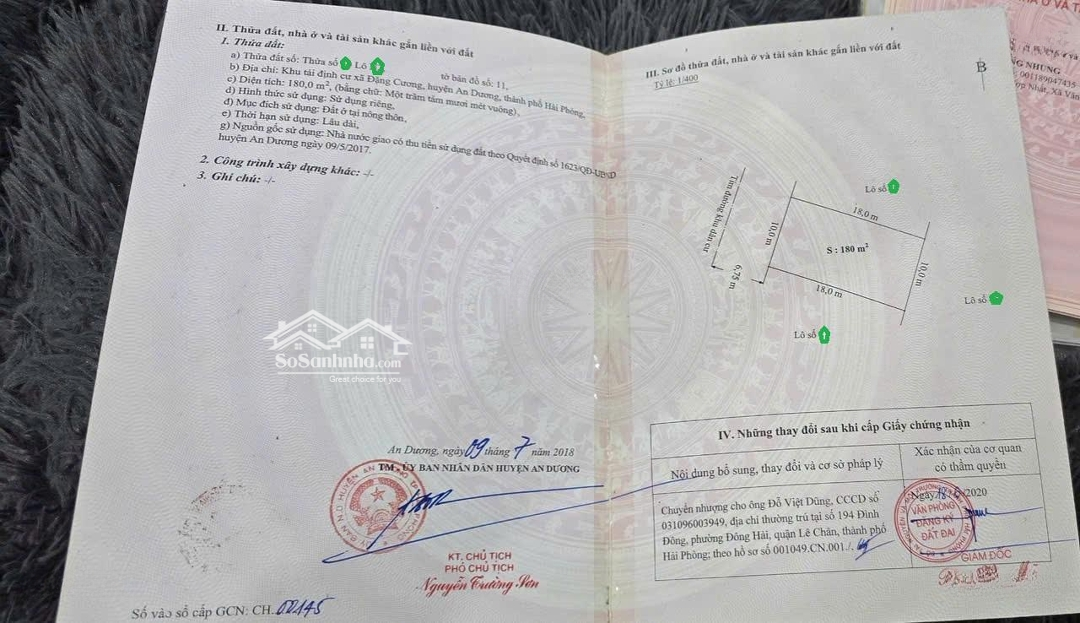 II. Thửa đất, nhà ở và tài sản khác gắn liền với đất
1. Thửa đất:
a) Thửa đất số: Thửa số Lô tờ bản đồ số: 11,
b) Địa chỉ: Khu tái định cư xã Đặng Cương, huyện An Dương, thành phố Hải Phòng,
c) Diện tích: 180,0 m², (bằng chữ: Một trăm tám mươi mét vuông),
d) Hình thức sử dụng: Sử dụng riêng,
đ) Mục đích sử dụng: Đất ở tại nông thôn,
e) Thời hạn sử dụng: Lâu dài,
g) Nguồn gốc sử dụng: Nhà nước giao có thu tiền sử dụng đất theo Quyết định số 1623/QĐ-UBND
huyện An Dương 09/5/2017.
2. Công trình xây dựng khác: -/-
3. Ghi chú: -/-
An Dương, ngày 09 tháng 7 năm 2018
TM. ỦY BAN NHÂN DÂN HUYỆN AN DƯƠNG
KT. CHỦ TỊCH
PHÓ CHỦ TỊCH
Nguyễn Trường Sơn
Số vào sổ cấp GCN: CH. 00145
III. Sơ đồ thửa đất, nhà ở và tài sản khác gắn liền với đất
Tỷ lệ: 1/400
B
Tim đường khu dân cư
6,75 m
10,0 m
18,0 m
S : 180 m²
18,0 m
10,0 m
Lô số
Lô số
Lô số
IV. Những thay đổi sau khi cấp Giấy chứng nhận
Nội dung bổ sung, thay đổi và cơ sở pháp lý
Xác nhận của cơ quan
có thẩm quyền
Chuyển nhượng cho ông Đỗ Việt Dũng, CCCD số
031096003949, địa chỉ thường trú tại số 194 Đình
Đông, phường Đông Hải, quận Lê Chân, thành phố
Hải Phòng; theo hồ sơ số 001049.CN.001./.
Ngày 18 2020
VĂN PHÒNG
ĐĂNG KÝ
ĐẤT ĐAI
GIÁM ĐỐC
NG NHUNG
001189047435
SoSanhnha.com
Great choice for you